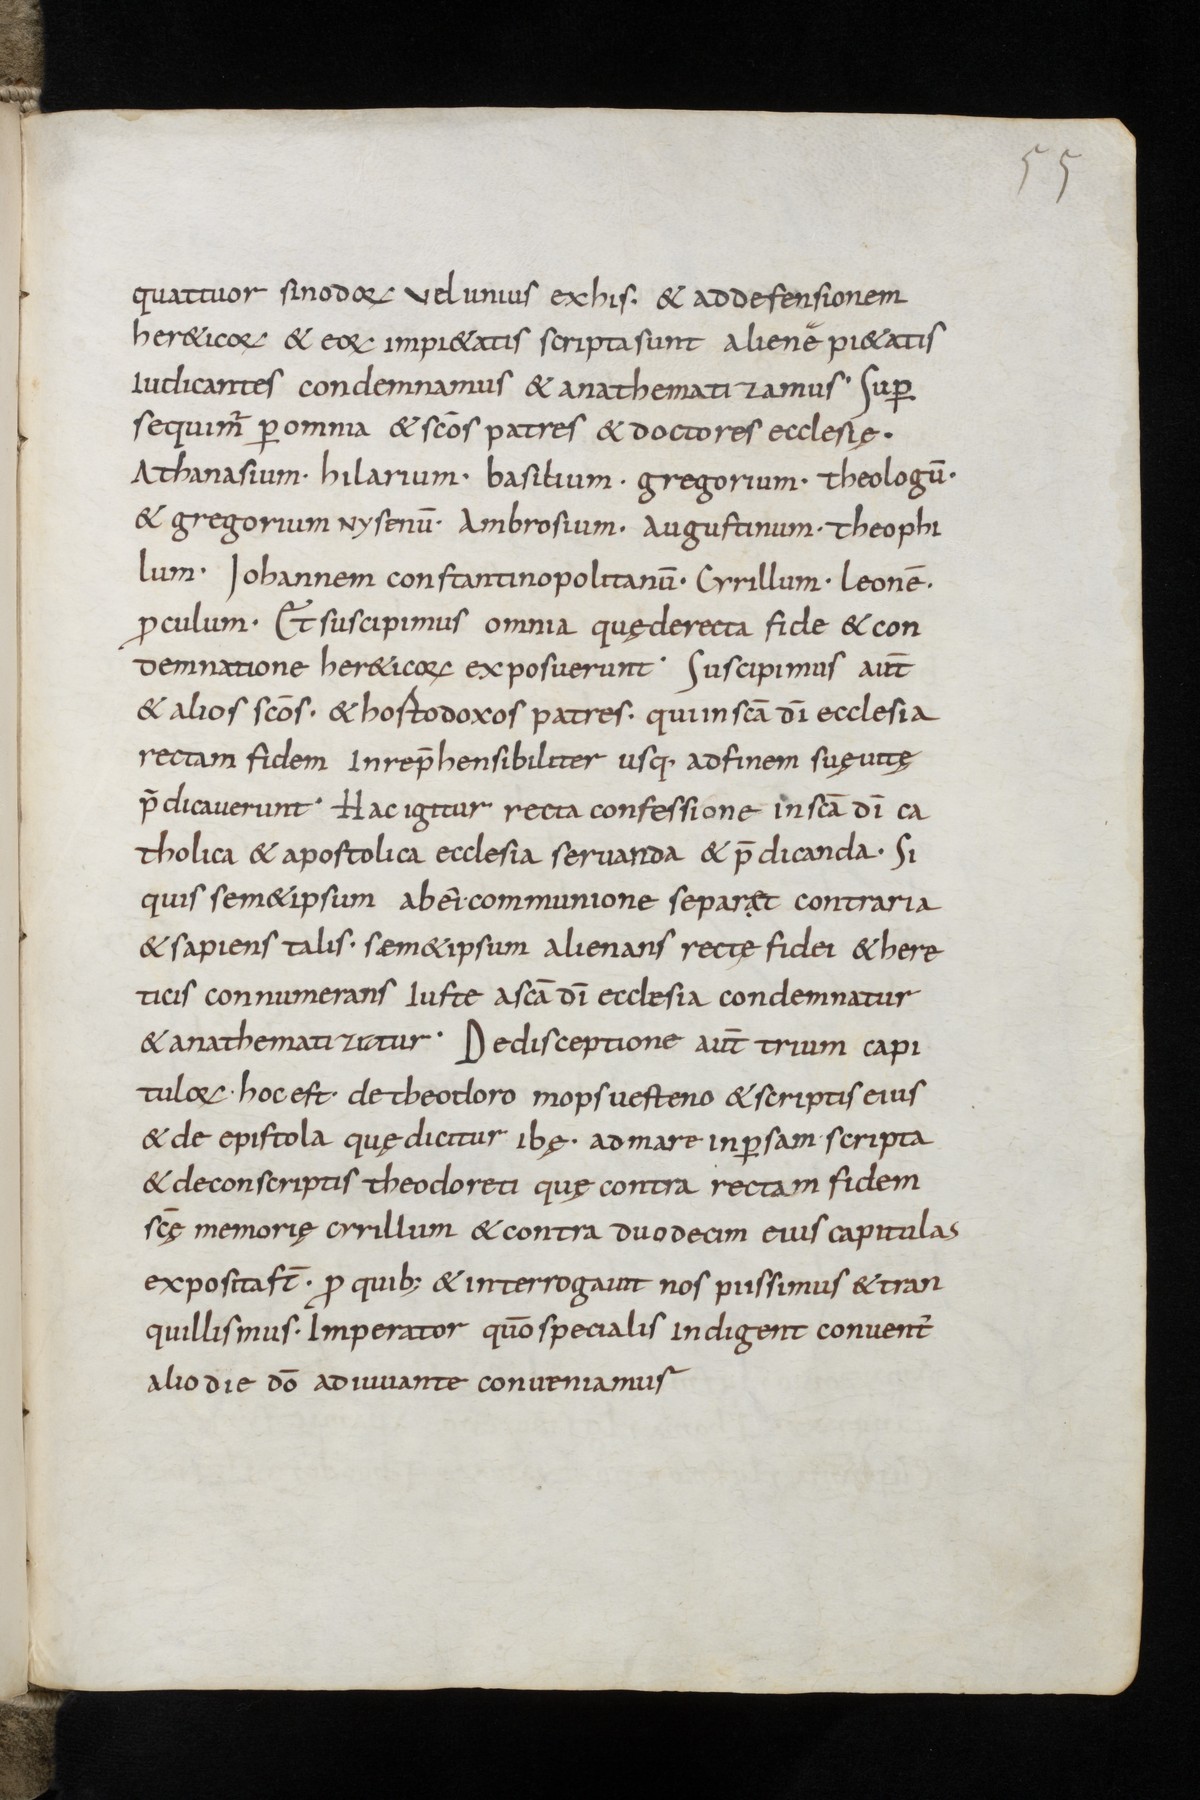 55
quattuor sinodoꝝ vel unius exhis· & addefensionem
her&icoꝝ & eoꝝ impi&atis scripta sunt alienę pi&atis
Iudicantes condemnamus & anathematizamus· Suꝑ
sequim̃ ꝑ omnia & sc̄os patres & doctores ecclesię·
Athanasium· hilarium· basilium· gregorium· theologū·
& gregorium nysenū· Ambrosium· Augustinum· theophi
lum· Johannem constantinopolitanū· Cyrillum· leonē·
ꝓculum· Et suscipimus omnia quę derecta fide & con
demnatione her&icoꝝ exposuerunt· Suscipimus aut̄
& alios sc̄os· & hostodoxos patres· qui in sc̄a dī ecclesia
rectam fidem Inrep̄hensibiliter usq· adfinem suę uitę
p̄dicauerunt· Hac igitur recta confessione in sc̄a dī ca
tholica & apostolica ecclesia seruanda & p̄dicanda· Si
quis sem&ipsum ab eī communione separęt contraria
& sapiens talis· sæm&ipsum alienans rectę fidei & here
ticis connumerans Iuste a sc̄a dī ecclesia condemnatur
& anathematizatur· De disceptione aut̄ trium capi
tuloꝝ· hoc est· de theodoro mopsuesteno & scriptis eius
& de epistola quę dicitur ibę· ad mare inꝑsam scripta
& deconscriptis theodoreti quę contra rectam fidem
sc̄ę memorię cyrillum & contra duodecim eius capitulas
exposita st̄· ꝓ quib; & interrogauit nos piissimus & tran
quillismus· Imperator quō specialis Indigent conuent̃
alio die dō adiuuante conueniamus